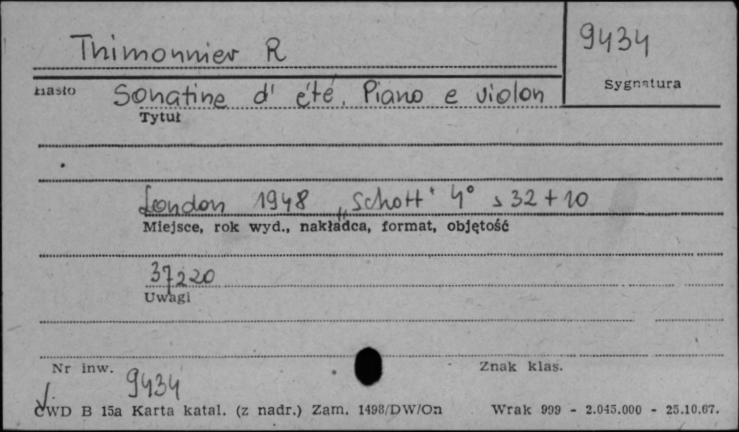 Thimonnier R
9434
Hasło
Sygnatura
Sonatine d' été. Piano e violon
Tytuł
London 1948 „Schott" 4° s 32 + 10
Miejsce, rok wyd., nakładca, format, objętość
37220
Uwagi
Nr inw.
Znak klas.
9434
CWD B 15a Karta katal. (z nadr.) Zam. 1498/DW/On Wrak 999 - 2.045.000 - 25.10.67.